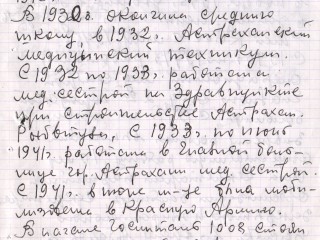 В 1930г. окончила среднюю
школу, в 1932г. Астраханский
медицинский техникум.
С 1932 по 1933г. работала
мед. сестрой на Здравпункте
при строительстве Астрахан.
С 1933г. по июнь
1941г. работала в Главной боль-
нице гор. Астрахани мед. сестрой.
С 1941г. в июне м-це была моби-
лизована в Красную Армию.
В начале Госпиталь 1008 стоял